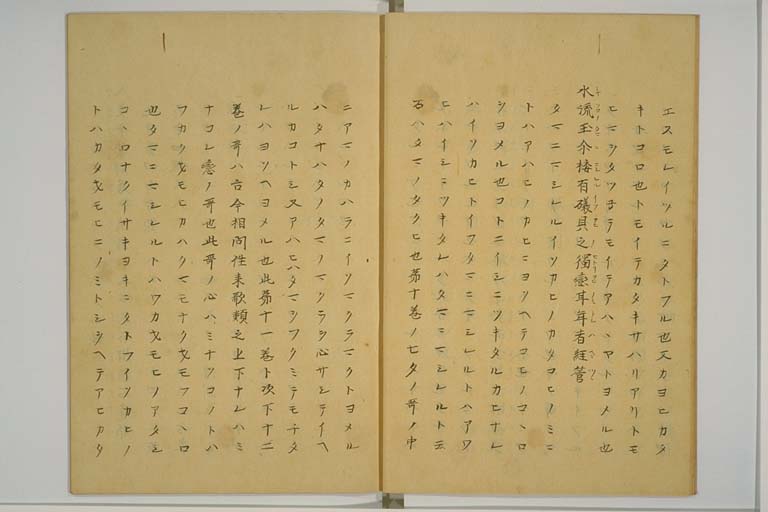 エスモレイツルニタトフル也又カヨヒカタ
キトコロ也トモイテカタキサハリアリトモ
ヒマシタツヨテモイテアハヽヤトヨメル也
水流玉尒接有礒貝之獨恋耳年者経管
タマニマシレルイソカヒノカタコヒノミニ
トハアハヒノカヒニヨソヘテコヒノコヽロ
シヨメル也コトニイシニツキタルカヒナレ
ハイソカヒトイフタマニマシレルトハアワ
ヒハイシニツキタレハタマニマシレルト云
石ハタマノタクヒ也第十巻ノ七夕ノ哥ノ中
ニアマノカハラニイソマクラマクトヨメル
ハタナハタノタマノマクラシ心サシテイヘ
ルカコトシ又アハヒハタマシフクミテモチタ
レハヨソヘヨメル也此第十一巻ト次下十二
巻ノ哥ハ古今相聞往来歌類之上下ナレハミ
ナコレ恋ノ哥也此哥ノ心ハミナソコノトハ
フカクオモヒカハクマモナクオモフコヽロ
也タマニマシレルトハワカオモヒノアタシ
コヽロナクイサキヨキニタトフイソカヒノ
トハカタオモヒニノミトシシヘテアヒカタ